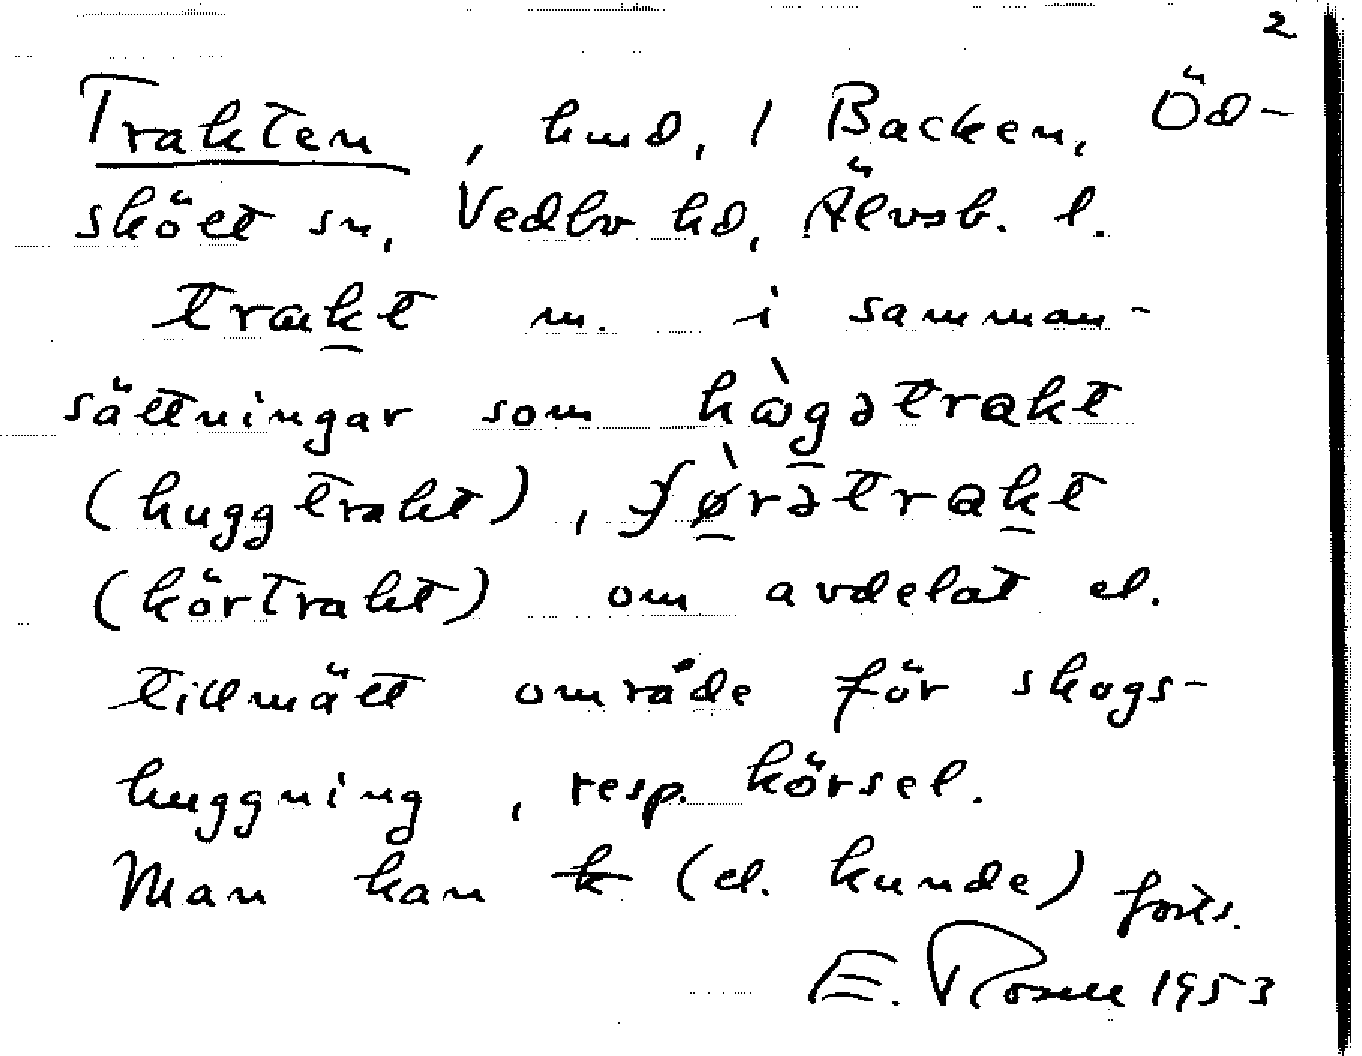 2
Trakten, hmd, 1 Backen, Öd-
skölt sn, Vedbo hd, Älvsb. l.
trakt m. i samman-
sättningar som hògətrakt
(huggtrakt), ɟø̀rətrakt
(körtrakt) om avdelat el.
tillmätt område för skogs-
huggning, resp. körsel.
Man kan k (el. kunde) forts.
E. Rosell 1953